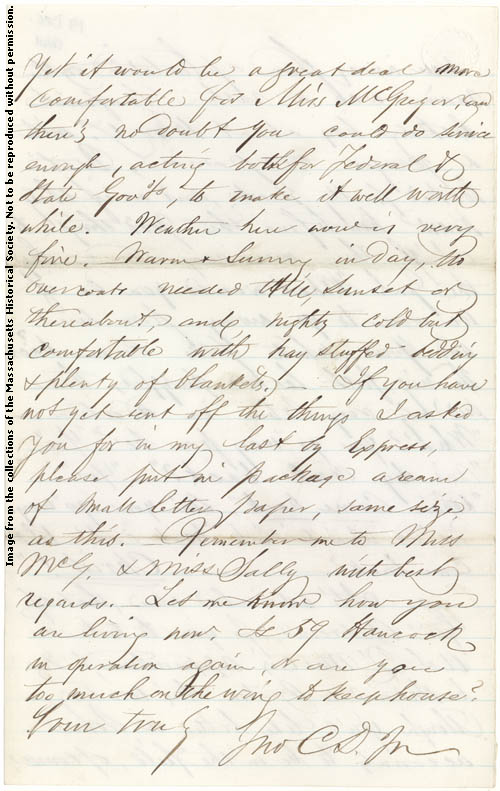 Yet it would be a great deal more
comfortable for Miss McGregor, and
there's no doubt you could do service
enough, acting both for Federal &
State Gov'ts, to make it well worth
while. Weather here now is very
fine. Warm & Sunny in day, no
overcoats needed till, Sunset or
thereabout, and, nights cold but
comfortable with hay stuffed bedding
& plenty of blankets. — If you have
not yet sent off the things I asked
you for in my last by Express,
please put in package a ream
of small letter paper, same size
as this. — Remember me to Miss
McG. & Miss Sally with best
regards. — Let me know how you
are living now. Is 59 Hancock
in operation again, or are you
too much on the wing to keep house?
Your truly
Jno C. D. Jr
Image from the collections of the Massachusetts Historical Society. Not to be reproduced without permission.